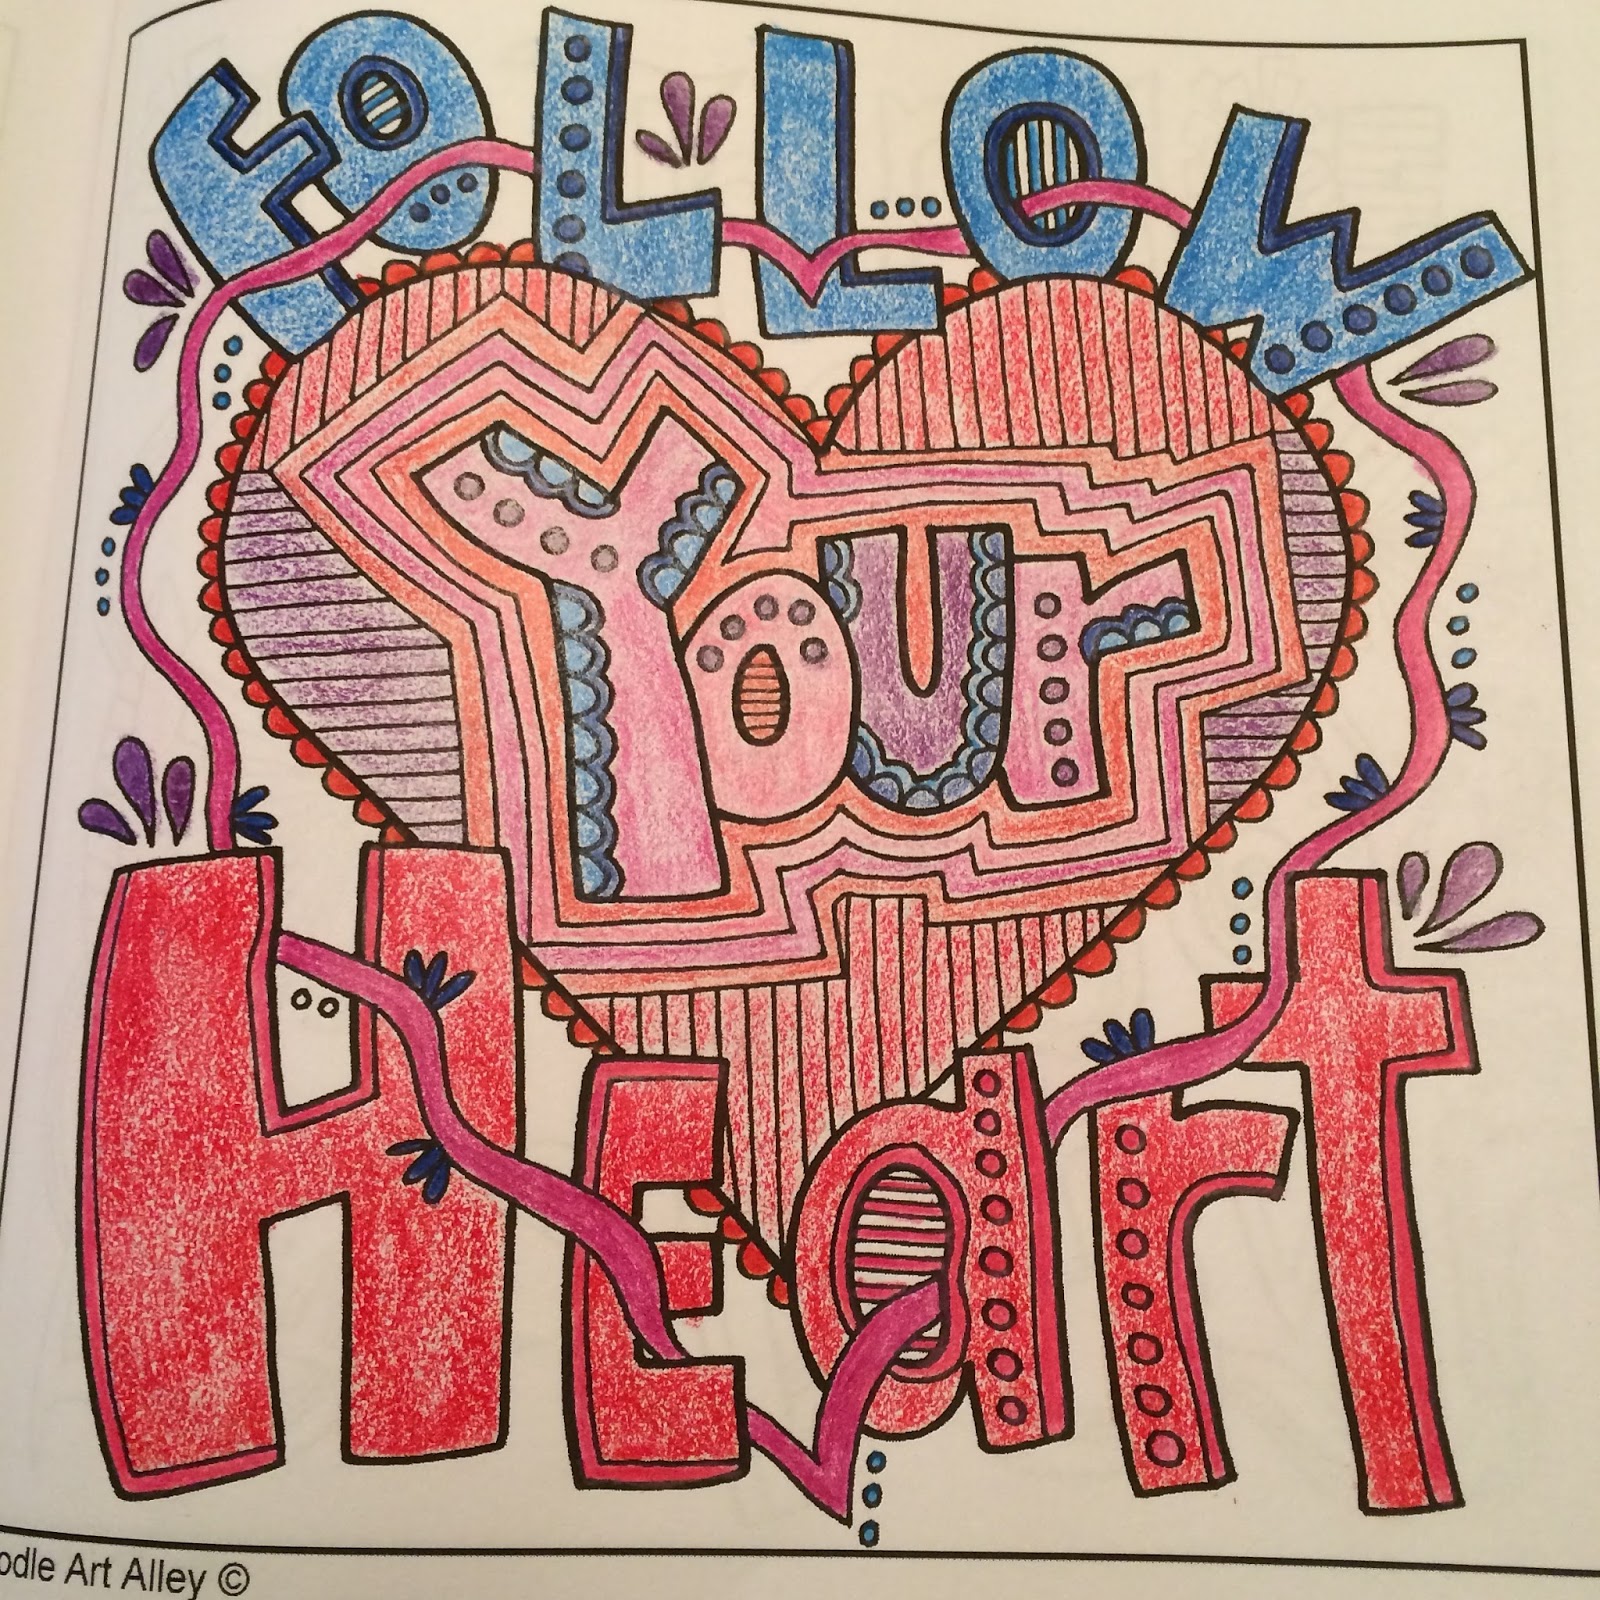 FOLLOW
Your
HEart
odle Art Alley ©